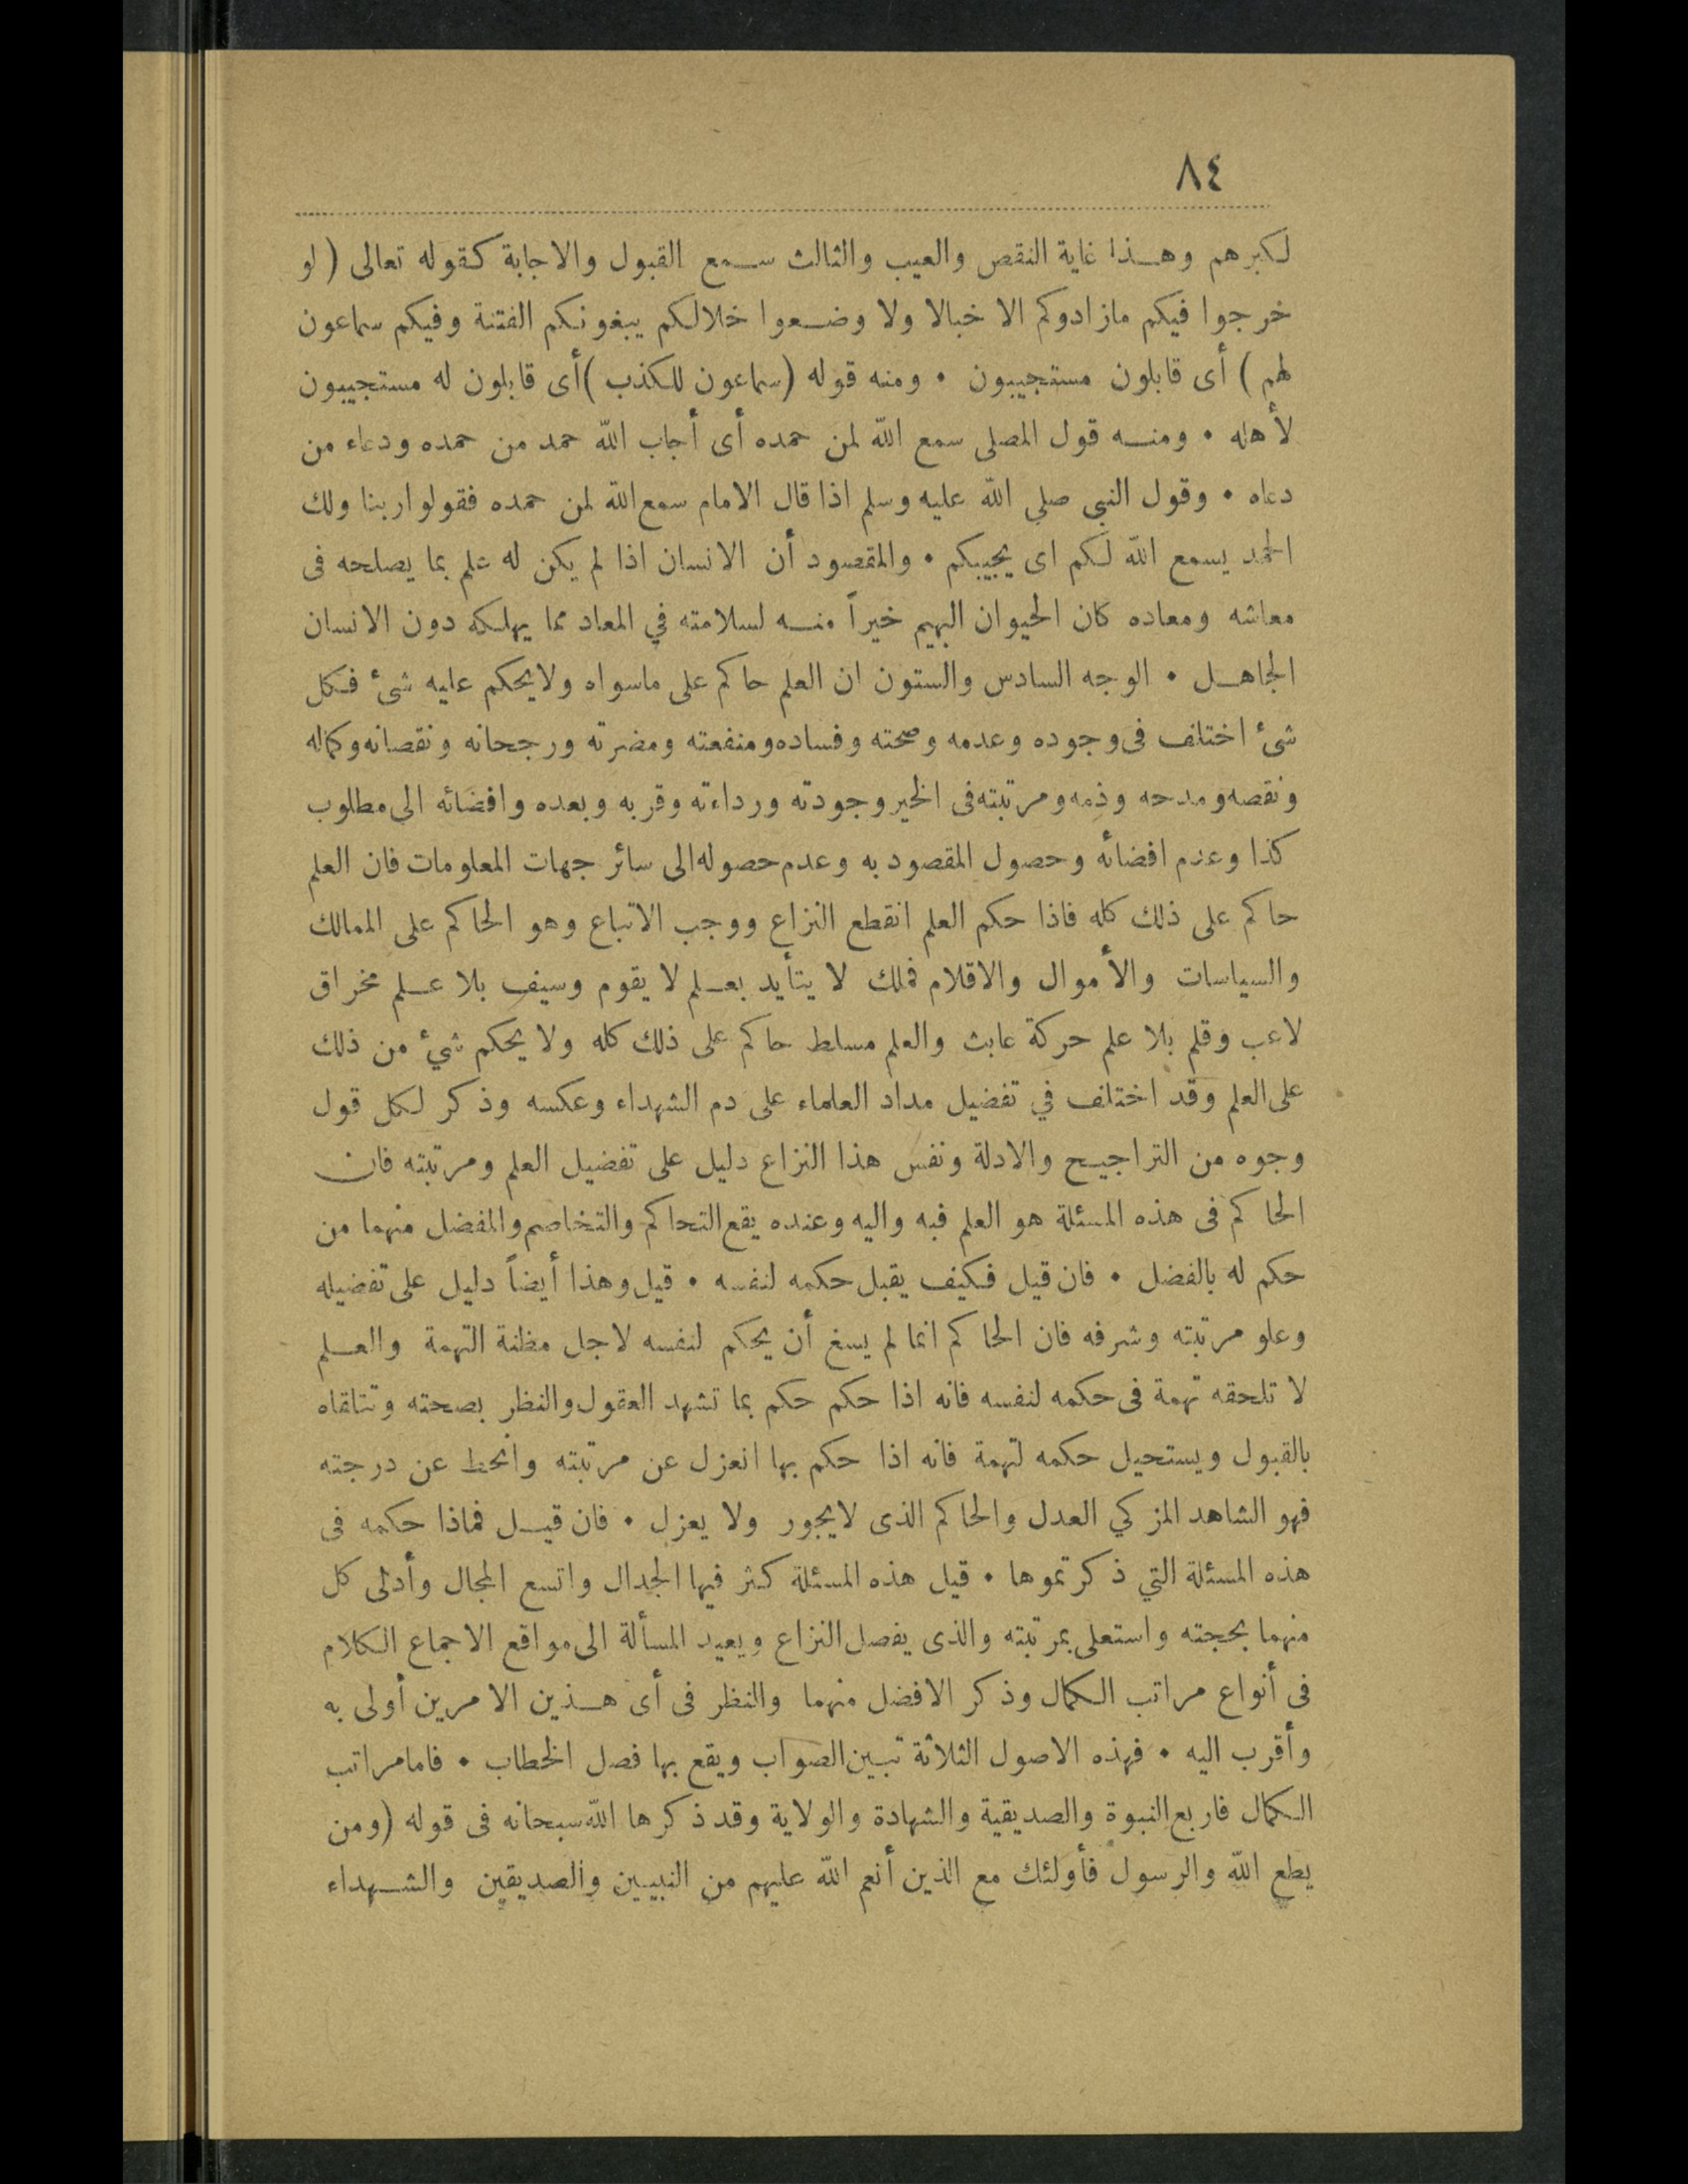 ٨٤
لكبرهم وهذا غاية النقص والعيب والثالث سمع القبول والاجابة كقوله تعالى ( لو
خرجوا فيكم مازادوكم الا خبالا ولا وضعوا خلالكم يبغونكم الفتنة وفيكم سماعون
لهم ) أى قابلون مستجيبون • ومنه قوله (سماعون للكذب )أى قابلون له مستجيبون
لأهله • ومنه قول المصلى سمع الله لمن حمده أى أجاب الله حمد من حمده ودعاء من
دعاه • وقول النبى صلى الله عليه وسلم اذا قال الامام سمع الله لمن حمده فقولوا ربنا ولك
الحمد يسمع الله لكم اى يجيبكم • والمقصود أن الانسان اذا لم يكن له علم بما يصلحه فى
معاشه ومعاده كان الحيوان البهيم خيراً منه لسلامته في المعاد مما يهلكه دون الانسان
الجاهل • الوجه السادس والستون ان العلم حاكم على ماسواه ولايحكم عليه شئ فكل
شئ اختلف فى وجوده وعدمه وصحته وفساده ومنفعته ومضرته ورجحانه ونقصانه وكماله
ونقصه ومدحه وذمه ومرتبته فى الخير وجودته ورداءته وقربه وبعده وافضائه الى مطلوب
كذا وعدم افضائه وحصول المقصود به وعدم حصوله الى سائر جهات المعلومات فان العلم
حاكم على ذلك كله فاذا حكم العلم انقطع النزاع ووجب الاتباع وهو الحاكم على الممالك
والسياسات والأموال والاقلام فملك لا يتأيد بعلم لا يقوم وسيف بلا علم مخراق
لاعب وقلم بلا علم حركة عابث والعلم مسلط حاكم على ذلك كله ولا يحكم شيء من ذلك
على العلم وقد اختلف في تفضيل مداد العلماء على دم الشهداء وعكسه وذكر لكل قول
وجوه من التراجيح والادلة ونفس هذا النزاع دليل على تفضيل العلم ومرتبته فان
الحاكم فى هذه المسئلة هو العلم فبه واليه وعنده يقع التحاكم والتخاصم والمفضل منهما من
حكم له بالفضل • فان قيل فكيف يقبل حكمه لنفسه • قيل وهذا أيضاً دليل على تفضيله
وعلو مرتبته وشرفه فان الحاكم انما لم يسغ أن يحكم لنفسه لاجل مظنة التهمة والعلم
لا تلحقه تهمة فى حكمه لنفسه فانه اذا حكم حكم بما تشهد العقول والنظر بصحته وتتلقاه
بالقبول ويستحيل حكمه لتهمة فانه اذا حكم بها انعزل عن مرتبته وانحط عن درجته
فهو الشاهد المزكي العدل والحاكم الذى لايجور ولا يعزل • فان قيل فماذا حكمه فى
هذه المسئلة التي ذكرتموها • قيل هذه المسئلة كثر فيها الجدال واتسع المجال وأدلى كل
منهما بحجته واستعلى بمرتبته والذى يفصل النزاع ويعيد المسألة الى مواقع الاجماع الكلام
فى أنواع مراتب الكمال وذكر الافضل منهما والنظر فى أى هذين الامرين أولى به
وأقرب اليه • فهذه الاصول الثلاثة تبين الصواب ويقع بها فصل الخطاب • فامامراتب
الكمال فاربع النبوة والصديقية والشهادة والولاية وقد ذكرها الله سبحانه فى قوله (ومن
يطع الله والرسول فأولئك مع الذين أنعم الله عليهم من النبيين والصديقين والشهداء